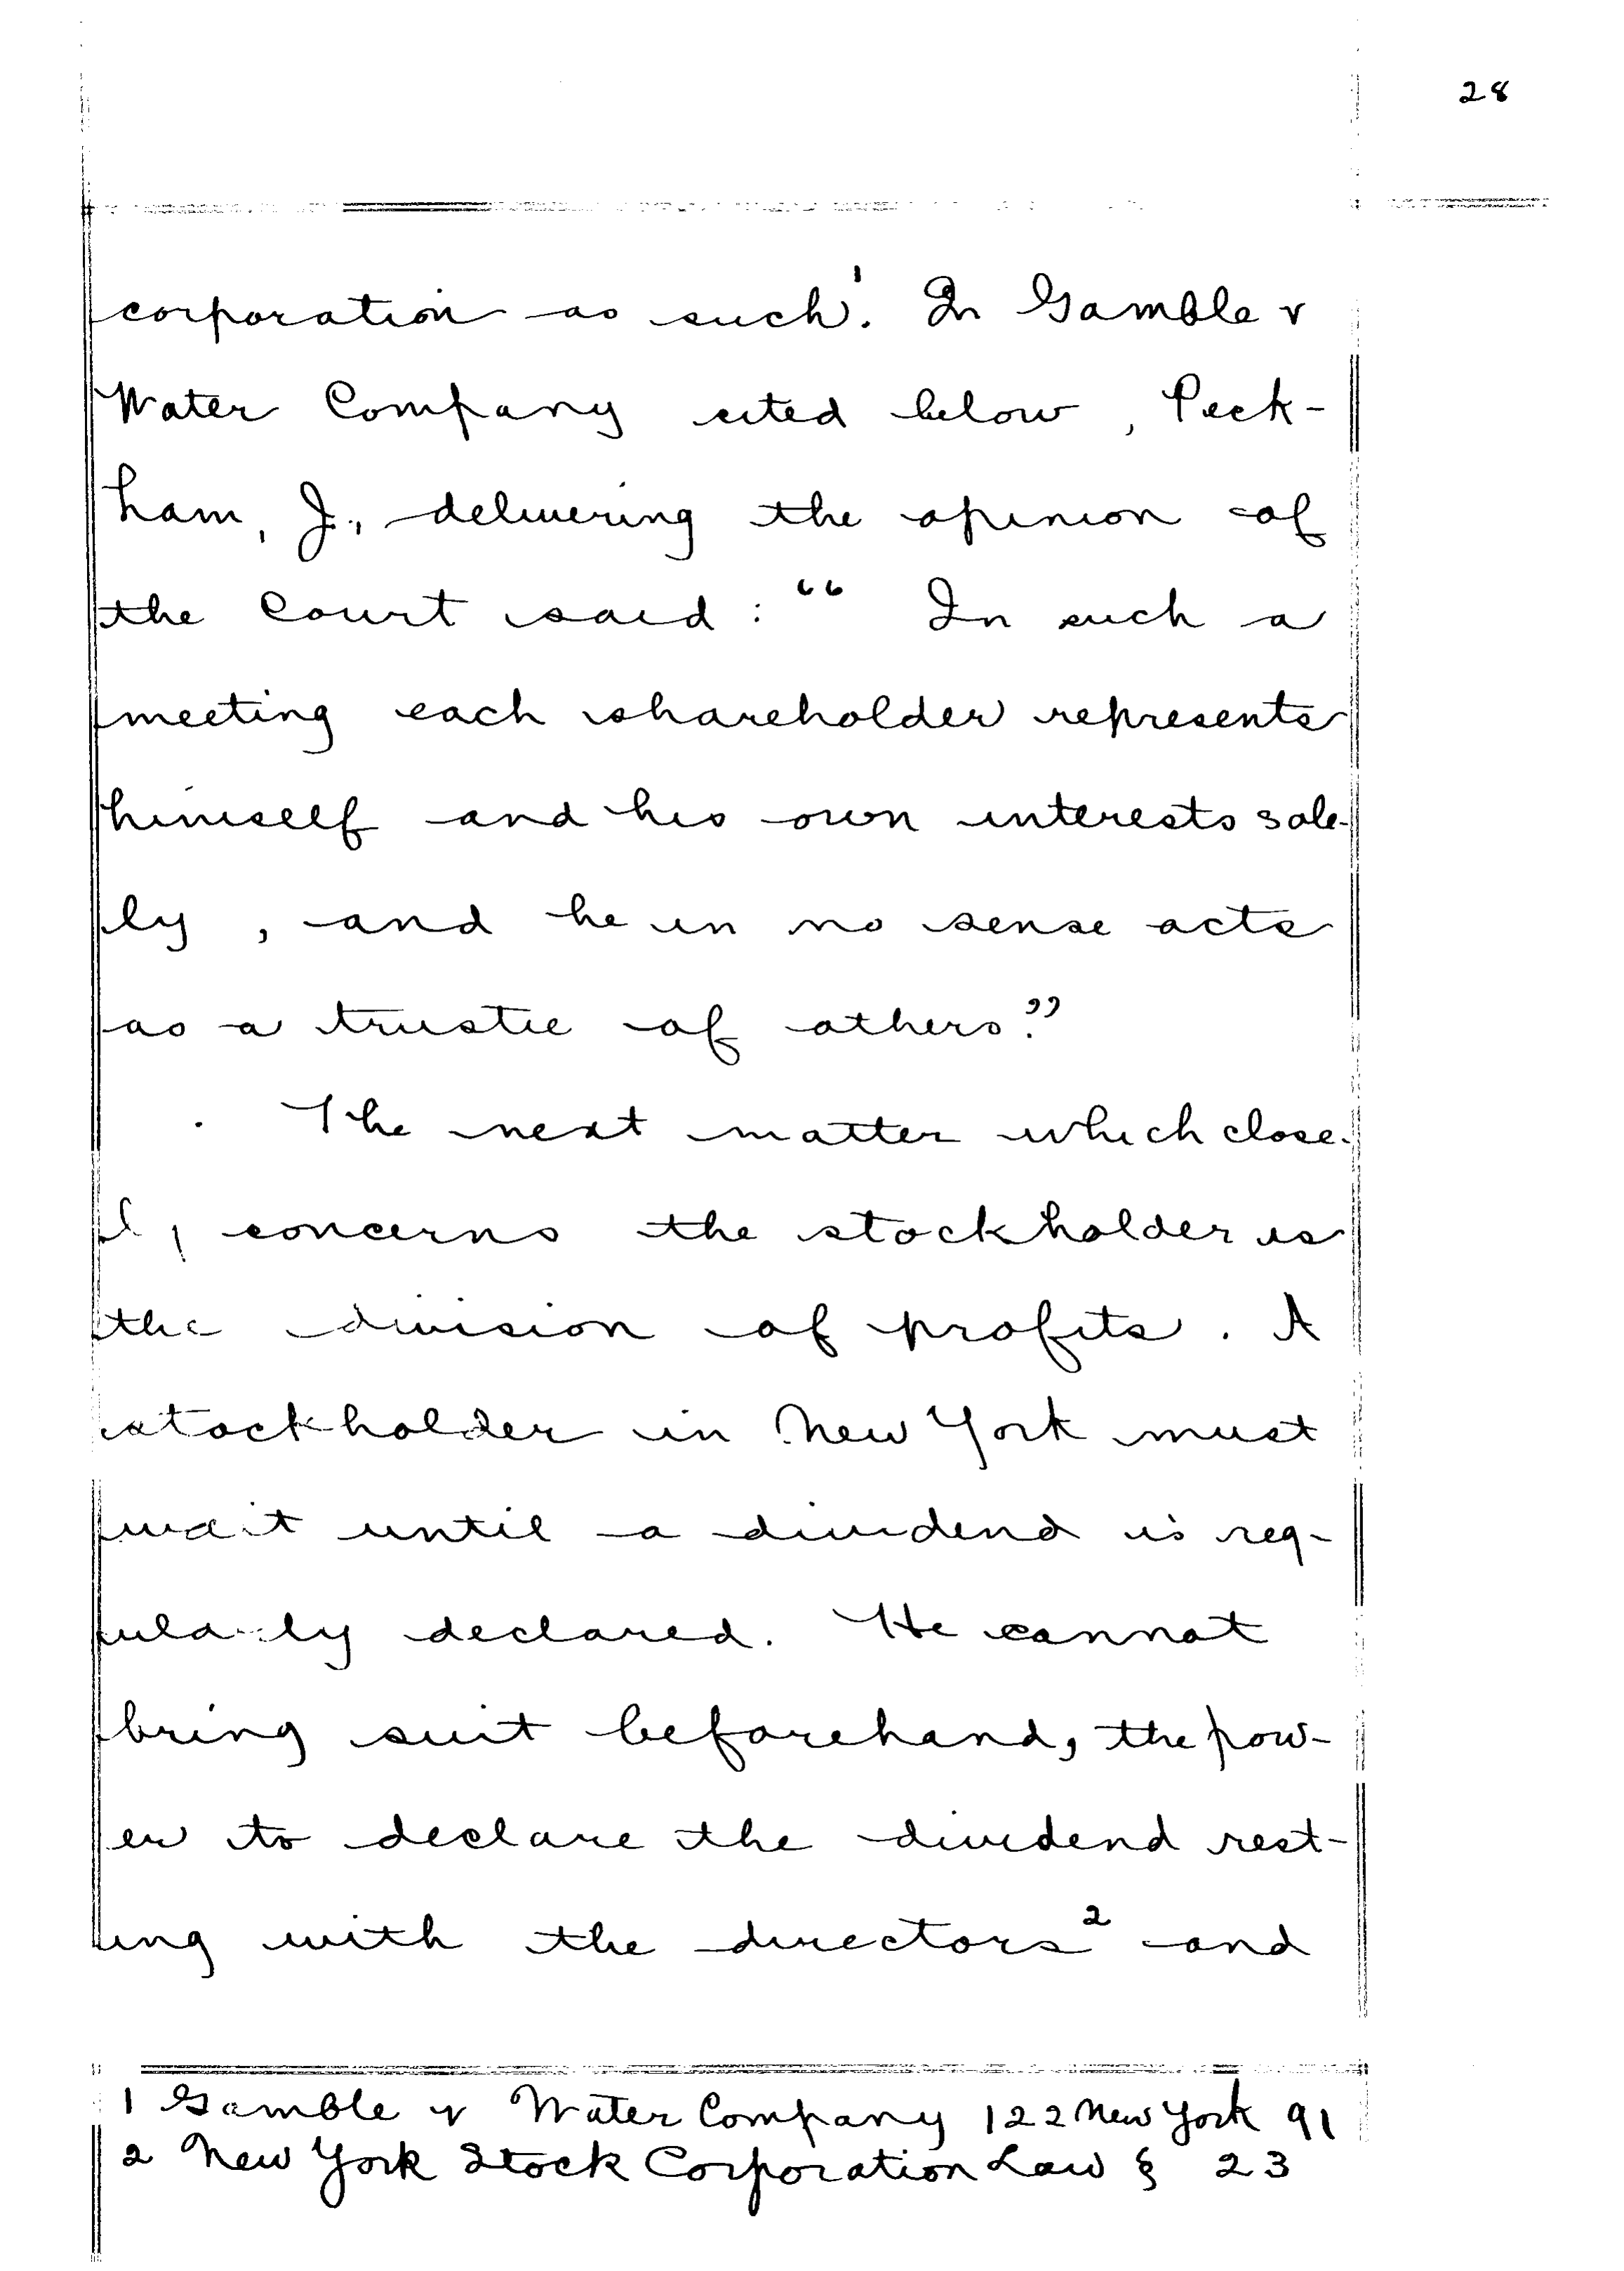 28
corporation as such¹. In Gamble v
Water Company cited below, Peck-
ham, J., delivering the opinion of
the Court said: “ In such a
meeting each shareholder represents
himself and his own interests sole-
ly, and he in no sense acts
as a trustee of others.”
The next matter which close-
ly concerns the stockholder is
the division of profits. A
stockholder in New York must
wait until a dividend is reg-
ularly declared. He cannot
bring suit beforehand, the pow-
er to declare the dividend rest-
ing with the directors² and
1 Gamble v Water Company 122 New York 91
2 New York Stock Corporation Law § 23